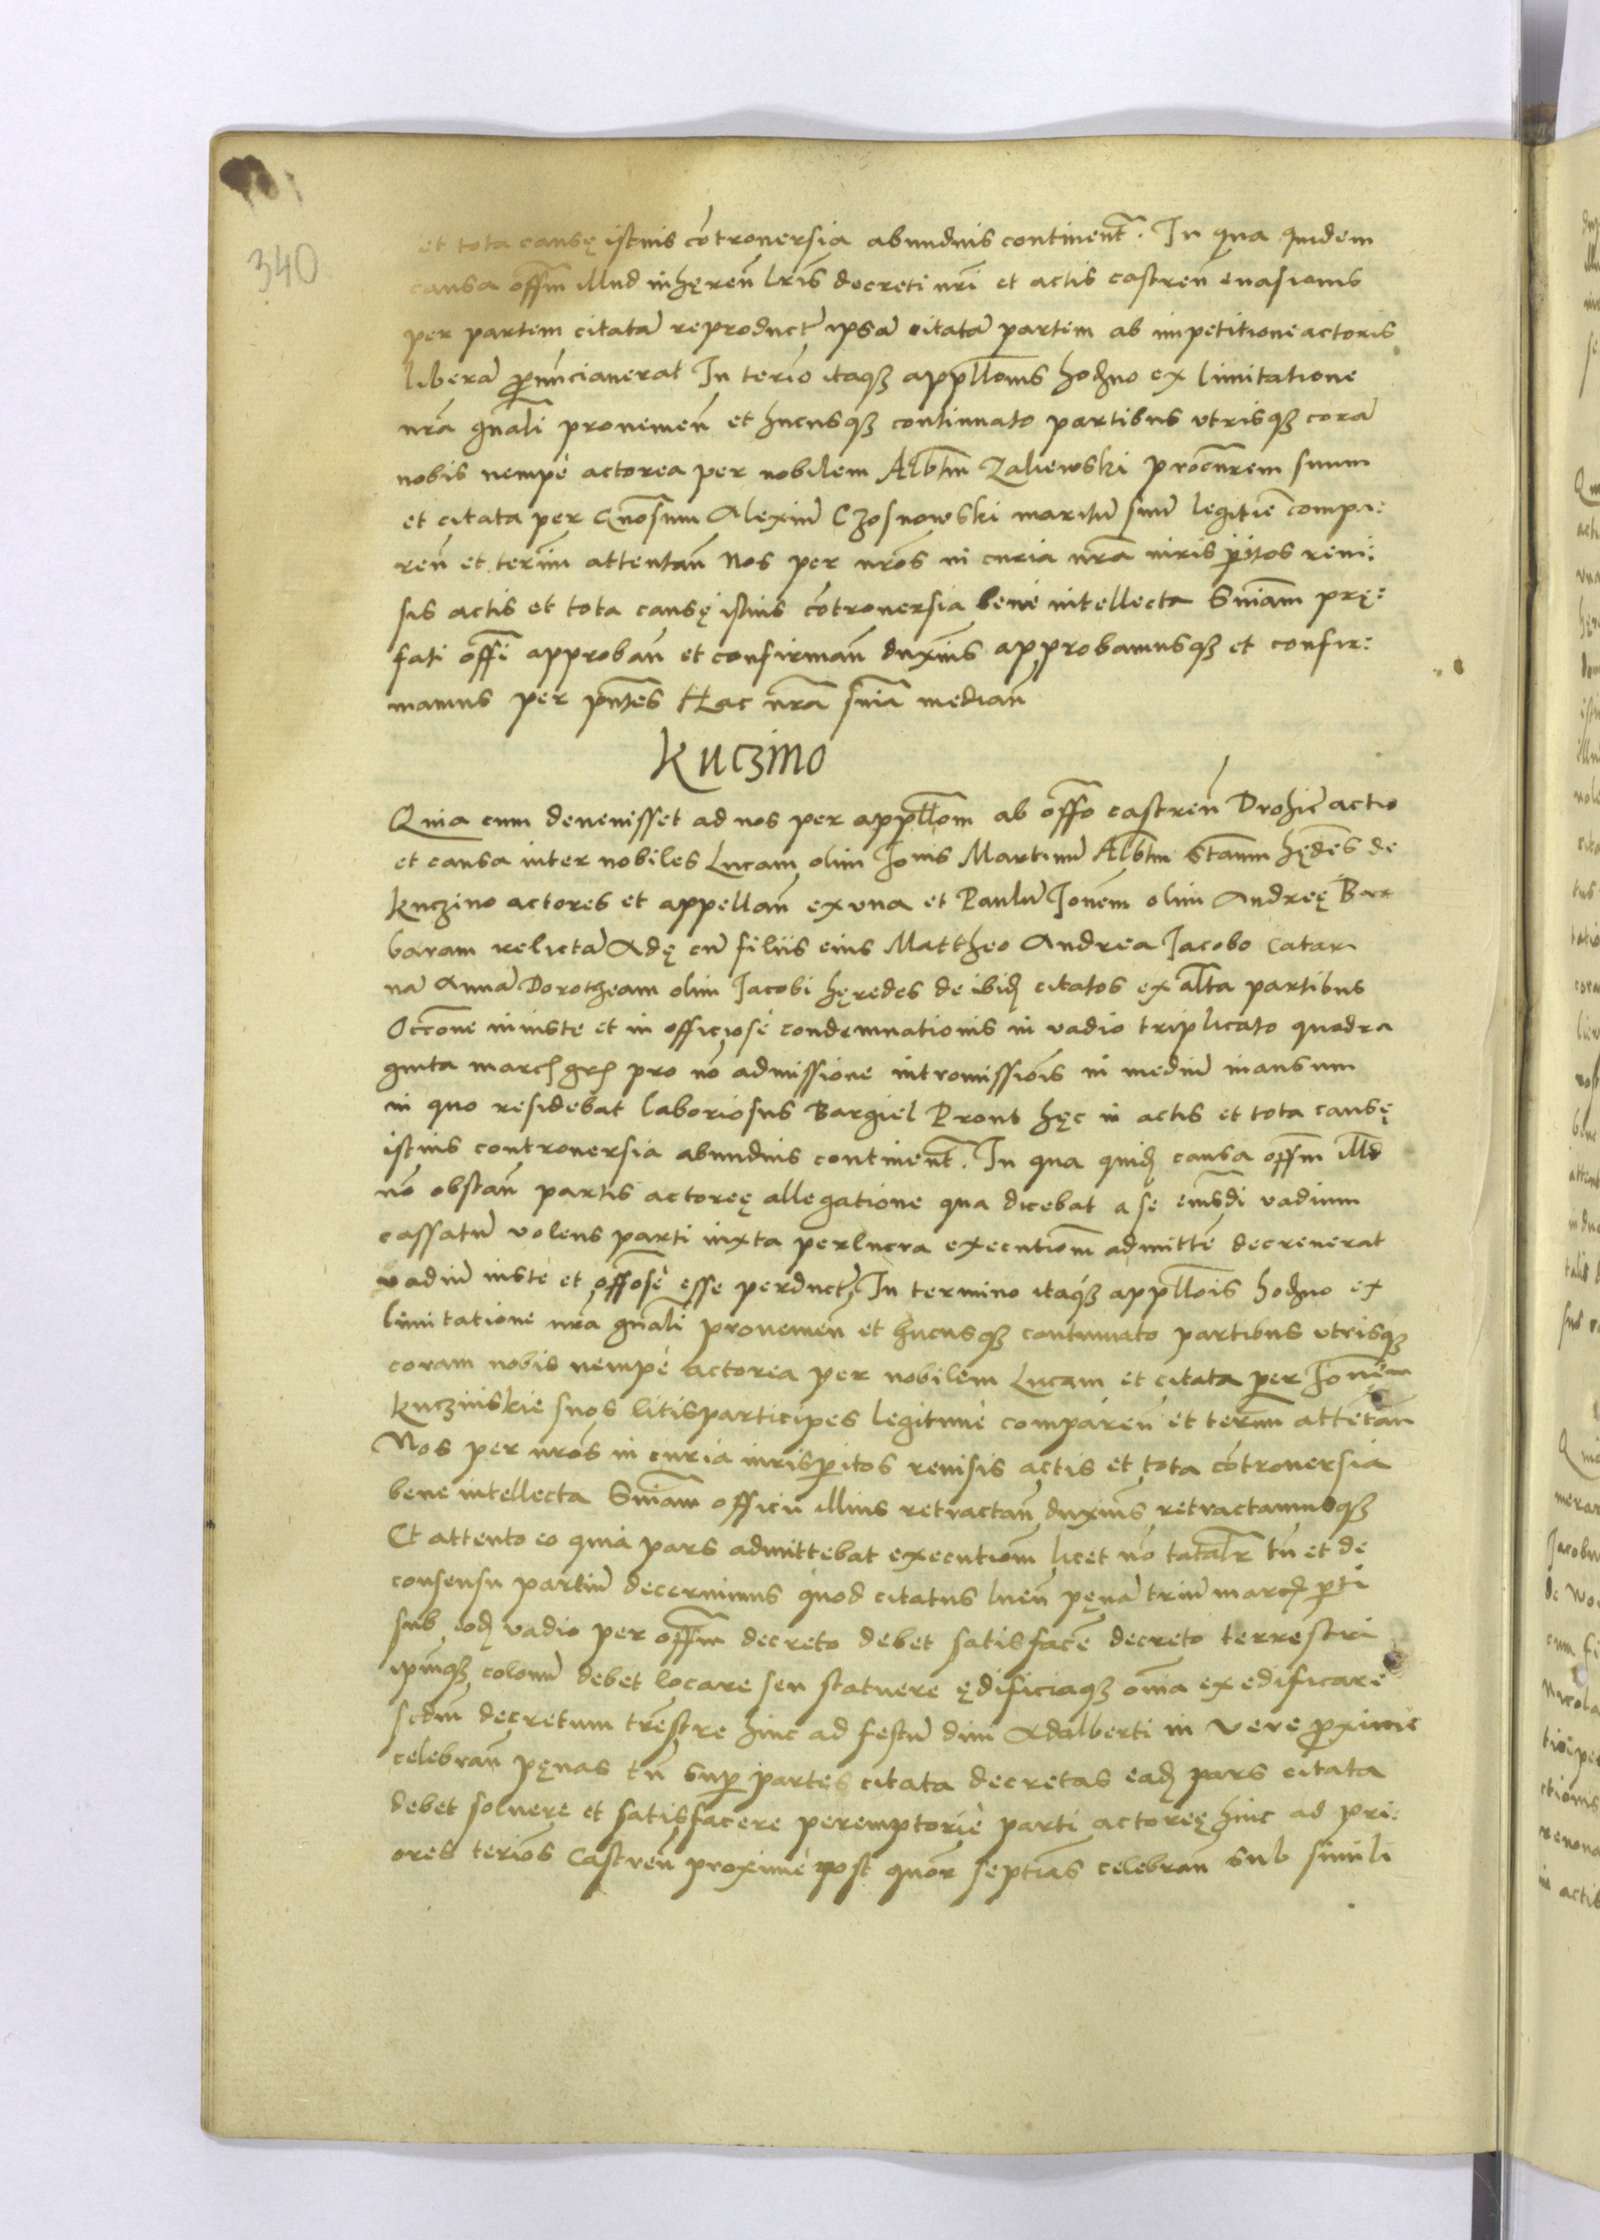 340
et tota causę istius cõtrouersia abundius continent̃. In qua quidem
causa offm̃ illud inhęreñ lr̃is decreti nr̃i et actis castreñ euasionis
per partem citatã reproduct̃ ipsã citatã partem ab impetitione actoris
liberã pronũcianerat In ter̃io itaqꝫ appll̃onis hodꝫno ex limitatione
nr̃a gñali proueniẽn et hucusqꝫ continuato partibus vtrisqꝫ corã
nobis nempè actorea per nobilem Albtm̃ Zaliewski procũrem suum
et citata per Gñosum Alexiũ Czosnowski maritũ suũ legitiẽ compa:
reñ et ter̃im attentañ Nos per nr̃os in curia nr̃a iuris pitos reui:
sis actis et tota causę istius cõtrouersia bene intellecta Sniãm prę:
fati offĩ approbañ et confirmañ duxim̃s approbamusqꝫ et confir:
mamus per pñtes Hac nr̃a sniã mediañ
Kuczino
Quia cum deuenisset ad nos per appll̃om ab offõ castreñ Drohic̃ actio
et causa inter nobiles Lucam olim Joñis Martinũ Albtm̃ Stañm hędẽs de
Kuczino actores et appellañ ex vna et Paulũ Joñem olim Andreę Bar
baram relictã Adę cũ filiis eius Mattheo Andrea Jacobo Catari
nã Annã Dorotheam olim Jacobi hęredes de ibidꝫ citatos ex alt̃a partibus
Occõne iniuste et in officiosè condemnationis in vadio triplicato quadra
ginta marcꝫ grꝫ pro nõ admissione intromissiõis in mediũ mansum
in quo residebat laboriosus Bargiel Prout hęc in actis et tota causę
istius controuersia abundius continent̃. In qua quidꝫ causa offm̃ illd̃
nõ obstañ partis actoreę allegatione qua dicebat a se eiusdĩ vadium
cassatũ volens parti iuxta perlucra executionm̃ admittẽ decreuerat
vadiũ iustè et offosè esse perduct̃. In termino itaqꝫ appll̃ois hodꝫno ex
limitatione nr̃a gñali proueniẽn et hucusqꝫ continuato partibus vtrisqꝫ
coram nobis nempè actorea per nobilem Lucam et citata per Joñem
Kuczinskie suos litisparticipes legitimè compareñ et ter̃im attẽtañ
Nos per nr̃os in curia iurispitos reuisis actis et tota cõtrouersia
bene intellecta Sniãm officii illius retractañ duxim̃s retractamusqꝫ
Et attento eo quia pars admittebat executionm̃ licet nõ totalr̃ tñ et de
consensu partiũ decernimus quod citatus lueñ pęnã triũ marcꝫ pti
sub eodꝫ vadio per offm̃ decreto debet satisfacẽ decreto terrestri
ipmqꝫ colonũ debet locare seu statuere ędificiaqꝫ oĩa exedificare
scdm̃ decretum trẽstre hinc ad festũ diui Adalberti in vere proxime
celebrañ pęnas tñ sup partes citata decretas eadꝫ pars citata
debet soluere et satisfacere peremptoriè parti actoreę hinc ad pri:
ores teriõs Castreñ proximè post quor̃ septiãs celebrañ sub simili